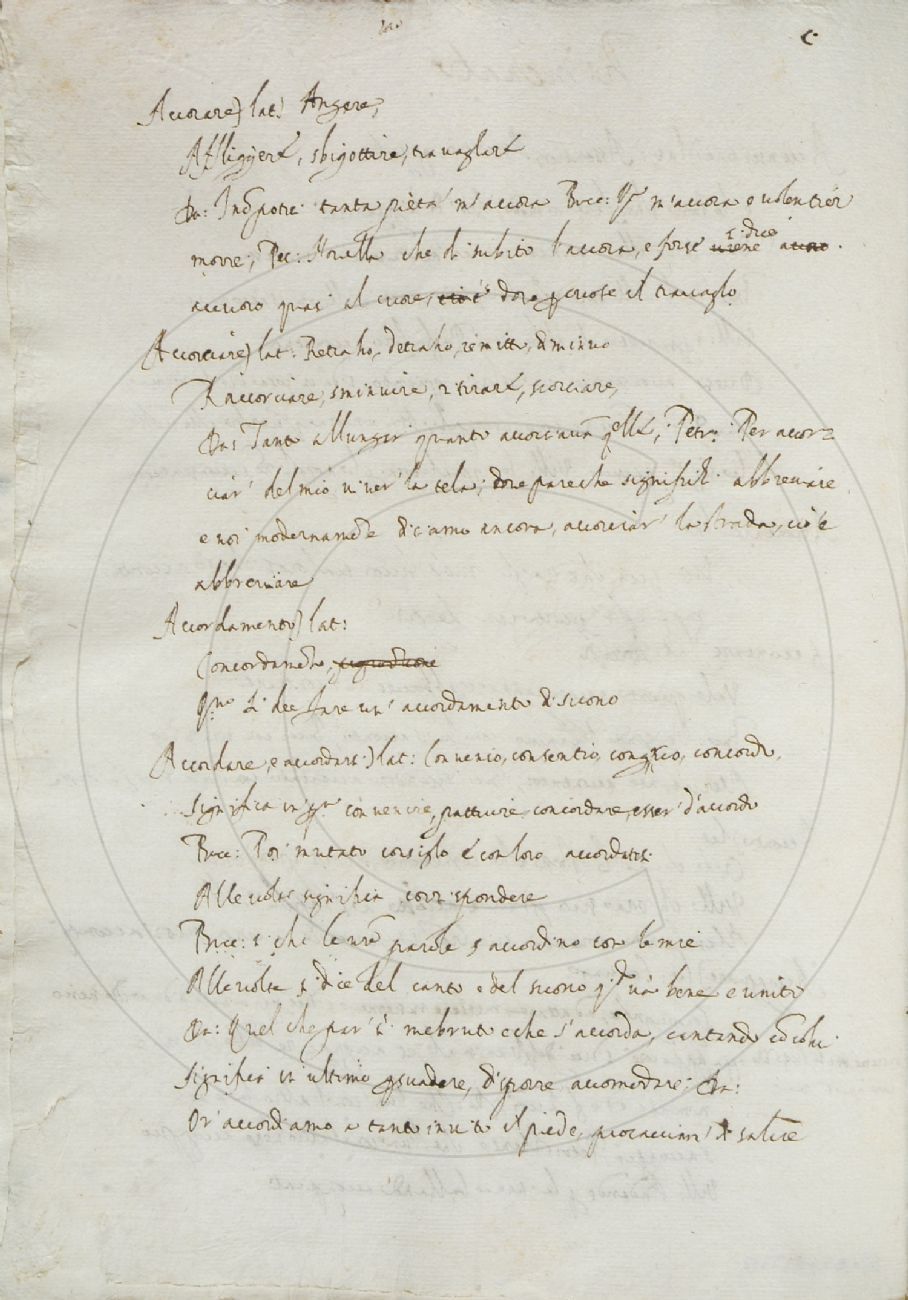 C
Accorare) lat: Angere,
Affliggere, sbigottire, travagliare
Da: potrei tanta pietà m'accora Bocc: m'accora e volentier
morrei, Pec: Novella che di subito l'accora, e forse viene si dice accoro
accuoro quasi al cuore, cioè dove percuote il travaglio
Accorciare) lat: Retraho, detraho, remitto, diminuo
Raccorciare, sminuire, ritirare, scorciare,
Da: Tanto allungar quanto accorciava quelle, Petr: Per accor=
ciar' del mio viver' la tela, dove pare che significhi abbreviare
e noi modernamente diciamo ancora, accorciar' la strada, cioè
abbreviare
Accordamento) lat:
Concordamento,
Si dee fare un' accordamento di suono
Accordare, e accordarsi) lat: Convenio, consentio, congruo, concordo,
Significa in convenire, pattuire, concordare, esser' d'accordo
Bocc: Poi mutato consiglio e con loro accordatosi
Alle volte significa corrispondere
Bocc: si che le vostre parole s'accordino con le mie
Alle volte si dice del canto e del suono quando và bene e unito
Da: Quel che par sì membruto e che s'accorda, cantando con colui
Significa in ultimo persuadere, disporre accomodare; Da:
Or' accordiamo a tanto invito il piede, procacciam' di salire